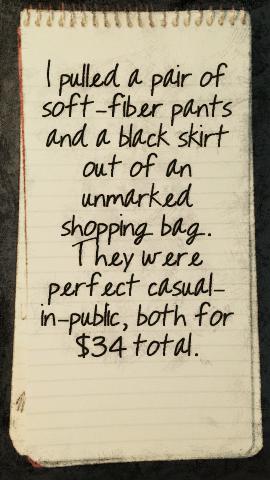 I pulled a pair of
soft-fiber pants
and a black skirt
out of an
unmarked
shopping bag.
They were
perfect casual-
in-public, both for
$34 total.